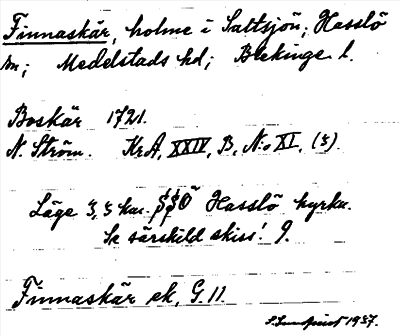 Finnaskär, holme i Saltsjön; Hasslö
sn; Medelstads hd; Blekinge l.
Boskär 1721.
N. Ström. KrA, XXIV, B, No XI, (3).
Läge 3,3 km. SSO Hasslö kyrka.
Se särskild skiss! 9.
Finnaskär ek, G. 11.
1937.